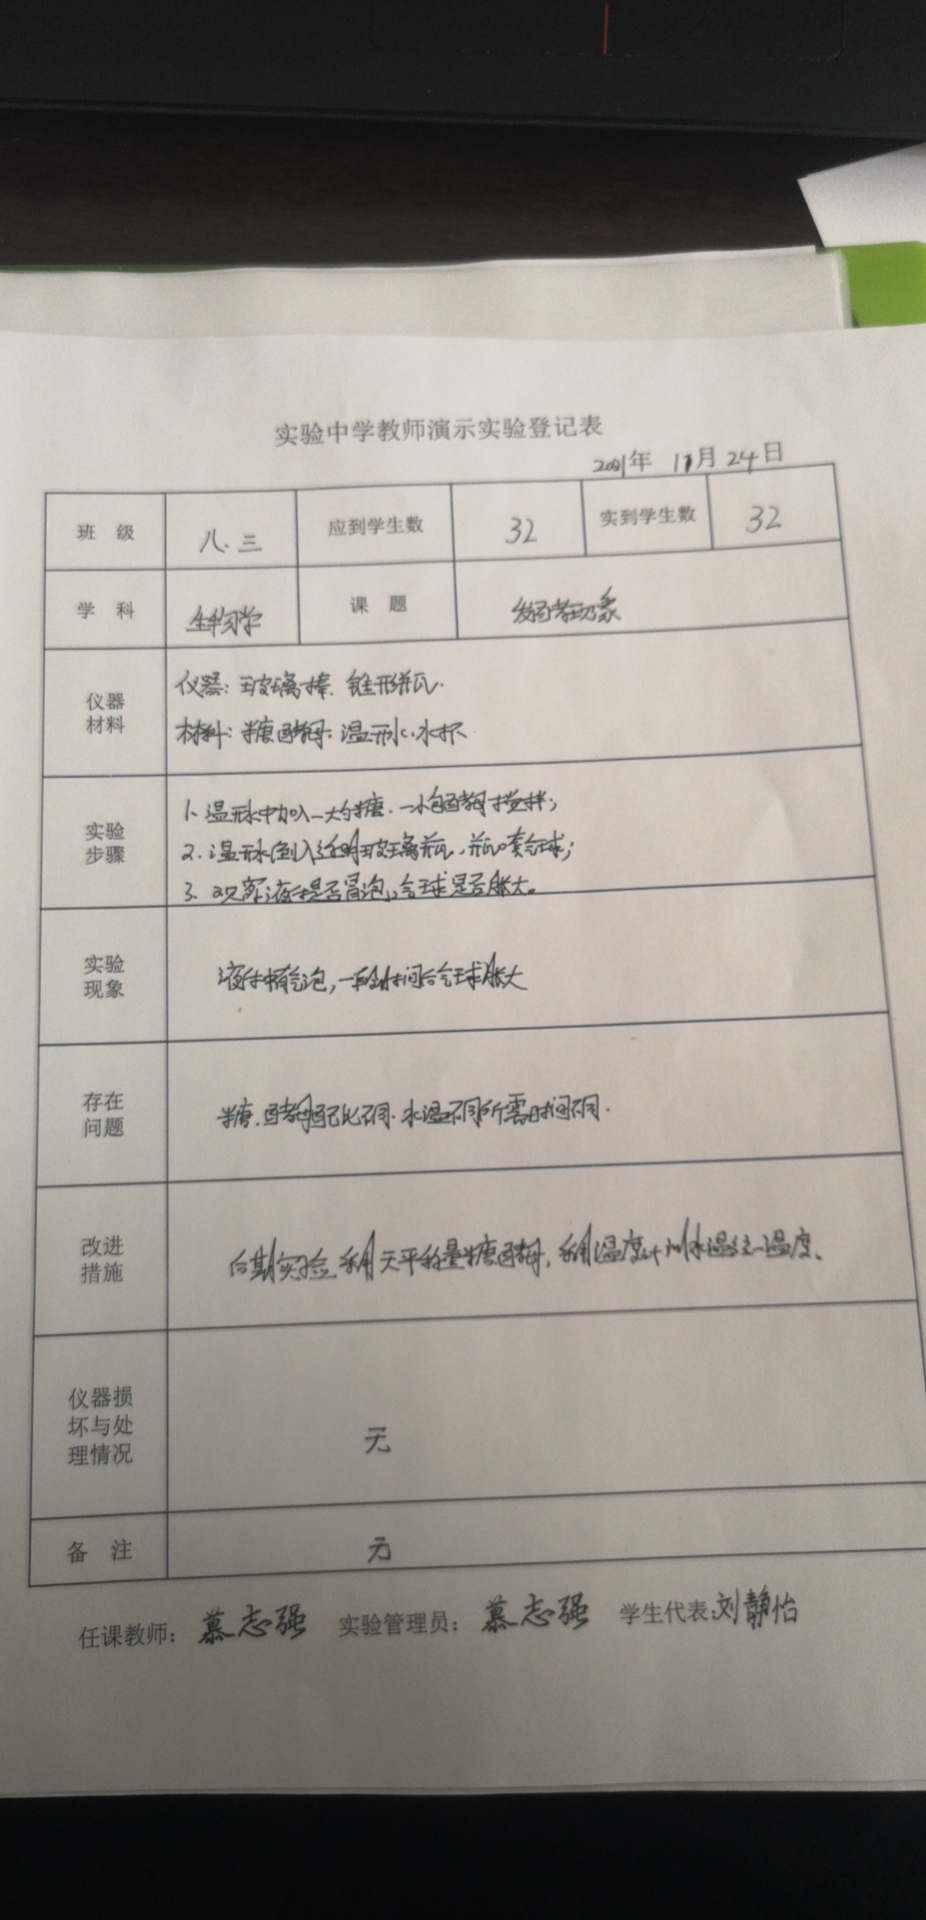 实验中学教师演示实验登记表
2021年 11月 24日
班 级 八.三 应到学生数 32 实到学生数 32
学 科 生物学 课 题 发酵现象
仪器材料
仪器: 玻璃棒. 锥形瓶.
材料: 糖 酵母. 温开水. 水杯.
实验步骤
1. 温开水中加入一大勺糖. 一小包酵母搅拌;
2. 温开水倒入透明玻璃瓶, 瓶口套气球;
3. 观察液体是否冒泡, 气球是否胀大。
实验现象
液体中有气泡, 一段时间后气球胀大
存在问题
糖. 酵母配比不同. 水温不同所需时间不同.
改进措施
后期实验 利用天平称量糖酵母, 利用温度计 水温 一温度.
仪器损坏与处理情况
无
备 注 无
任课教师: 慕志强 实验管理员: 慕志强 学生代表: 刘静怡